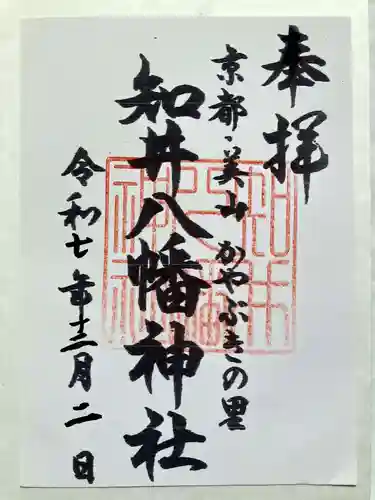 奉拝
京都・美山 かやぶきの里
知井八幡神社
令和七年十二月二日